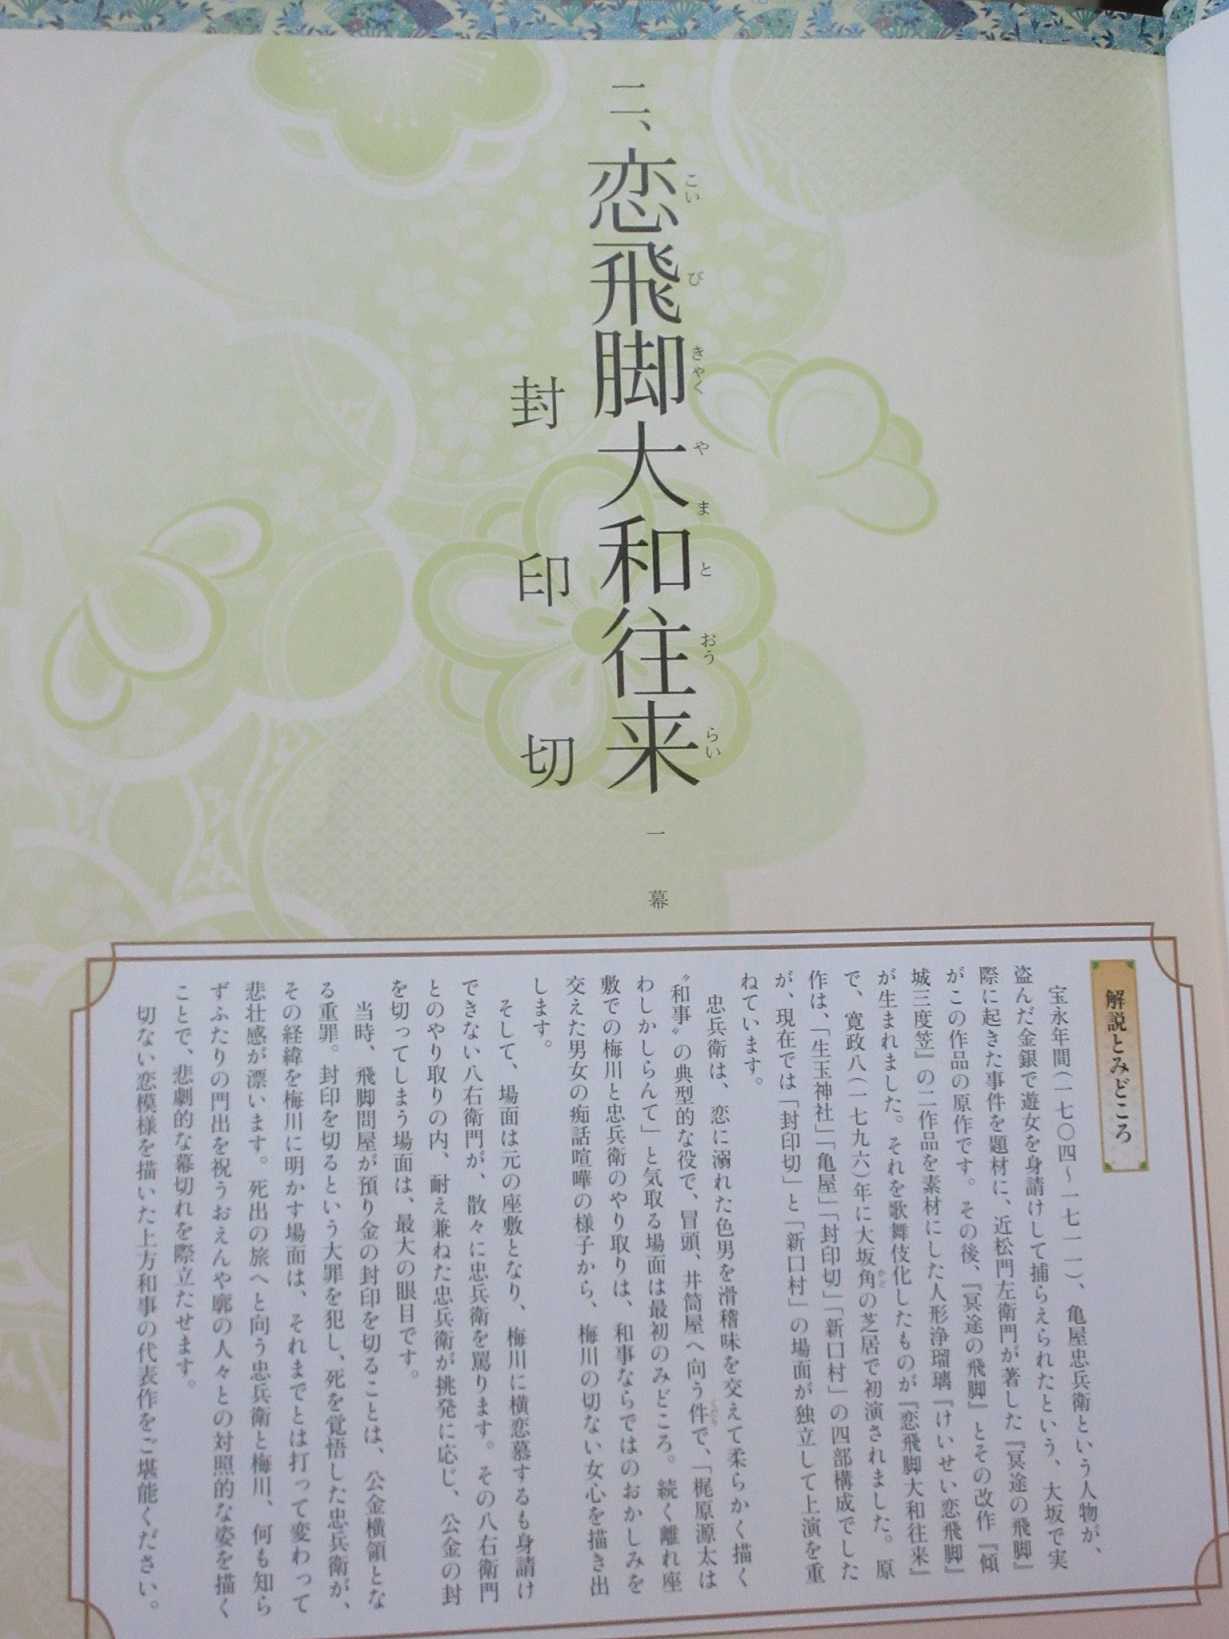 二、恋飛脚大和往来 一幕
こいびきゃくやまとおうらい
封印切
解説とみどころ
宝永年間(一七〇四～一七一一)、亀屋忠兵衛という人物が、
盗んだ金銀で遊女を身請けして捕らえられたという、大坂で実
際に起きた事件を題材に、近松門左衛門が著した『冥途の飛脚』
がこの作品の原作です。その後、『冥途の飛脚』とその改作『傾
城三度笠』の二作品を素材にした人形浄瑠璃『けいせい恋飛脚』
が生まれました。それを歌舞伎化したものが『恋飛脚大和往来』
で、寛政八(一七九六)年に大坂角の芝居で初演されました。原
作は、「生玉神社」「亀屋」「封印切」「新口村」の四部構成でした
が、現在では「封印切」と「新口村」の場面が独立して上演を重
ねています。
忠兵衛は、恋に溺れた色男を滑稽味を交えて柔らかく描く
〝和事〟の典型的な役で、冒頭、井筒屋へ向う件で、「梶原源太は
わしかしらんて」と気取る場面は最初のみどころ。続く離れ座
敷での梅川と忠兵衛のやり取りは、和事ならではのおかしみを
交えた男女の痴話喧嘩の様子から、梅川の切ない女心を描き出
します。
そして、場面は元の座敷となり、梅川に横恋慕するも身請け
できない八右衛門が、散々に忠兵衛を罵ります。その八右衛門
とのやり取りの内、耐え兼ねた忠兵衛が挑発に応じ、公金の封
を切ってしまう場面は、最大の眼目です。
当時、飛脚問屋が預り金の封印を切ることは、公金横領とな
る重罪。封印を切るという大罪を犯し、死を覚悟した忠兵衛が、
その経緯を梅川に明かす場面は、それまでとは打って変わって
悲壮感が漂います。死出の旅へと向う忠兵衛と梅川、何も知ら
ずふたりの門出を祝うおえんや廓の人々との対照的な姿を描く
ことで、悲劇的な幕切れを際立たせます。
切ない恋模様を描いた上方和事の代表作をご堪能ください。